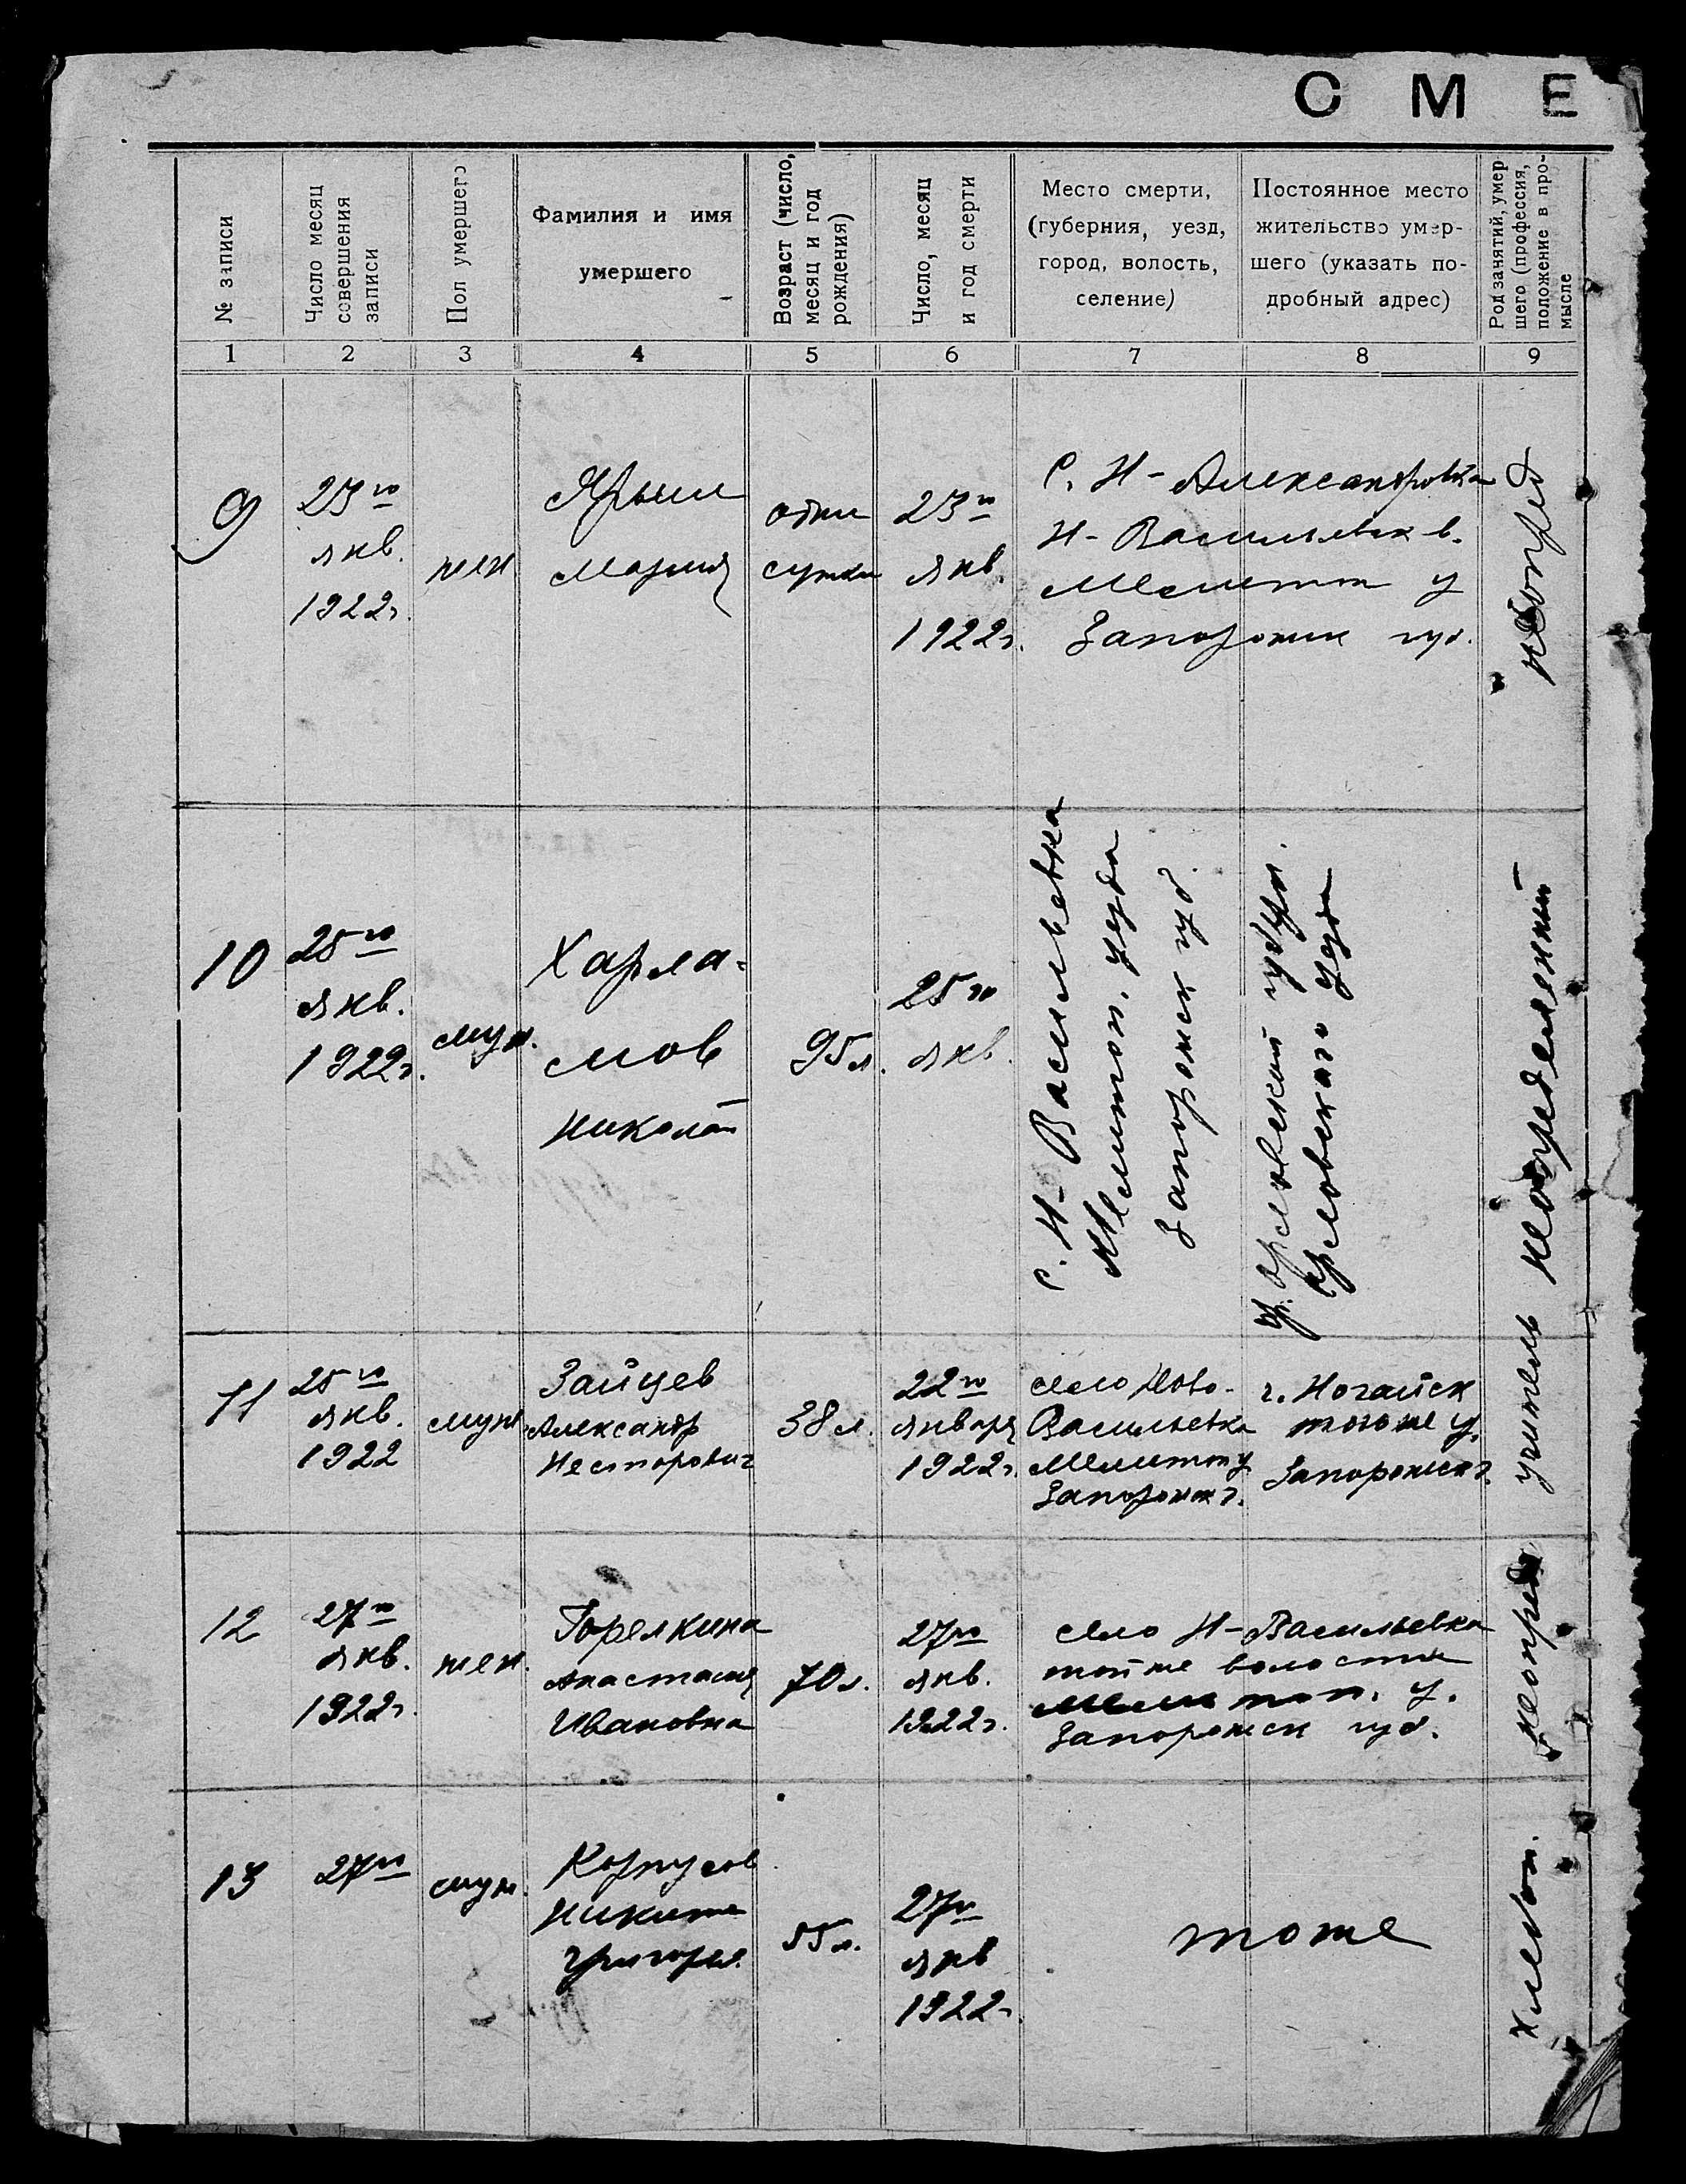 С М Е
№ записи
Число месяц
совершения
записи
Пол умершего
Фамилия и имя
умершего
Возраст (число,
месяц и год
рождения)
Число, месяц
и год смерти
Место смерти,
(губерния, уезд,
город, волость,
селение)
Постоянное место
жительство умер-
шего (указать по-
дробный адрес)
Род занятий, умер
шего (профессия,
положение в про-
мысле
1 2 3 4 5 6 7 8 9
9
23го
янв.
1922г.
жен
Мария
одни
сутки
23го
янв.
1922г.
С. Н-Александровка
Н-Васильевск в.
Мелитоп у
Запорожск губ.
неопред
10
25го
янв.
1922г.
муж.
Харла-
мов
Николай
95л.
25го
янв.
с. Н-Васильевка
Мелитоп. уезда
Запорожск губ.
гр. Орловской губерн.
Орловского уезда
неопределенный
11
25го
янв.
1922
муж
Зайцев
Александр
Несторович
38л.
22го
января
1922г.
село Ново-
Васильевка
Мелитоп у
Запорожск г.
г. Ногайск
того же у.
Запорожск г.
учитель
12
27го
янв.
1922г.
жен.
Горелкина
Анастасия
Ивановна
70л.
27го
янв.
1922г.
село Н-Васильевка
той же волости
Мелитоп. у.
Запорожск губ.
неопред
13
27го
муж.
Корпусов
Никита
Григорьев.
55л.
27го
янв
1922г.
тоже
хлебоп.